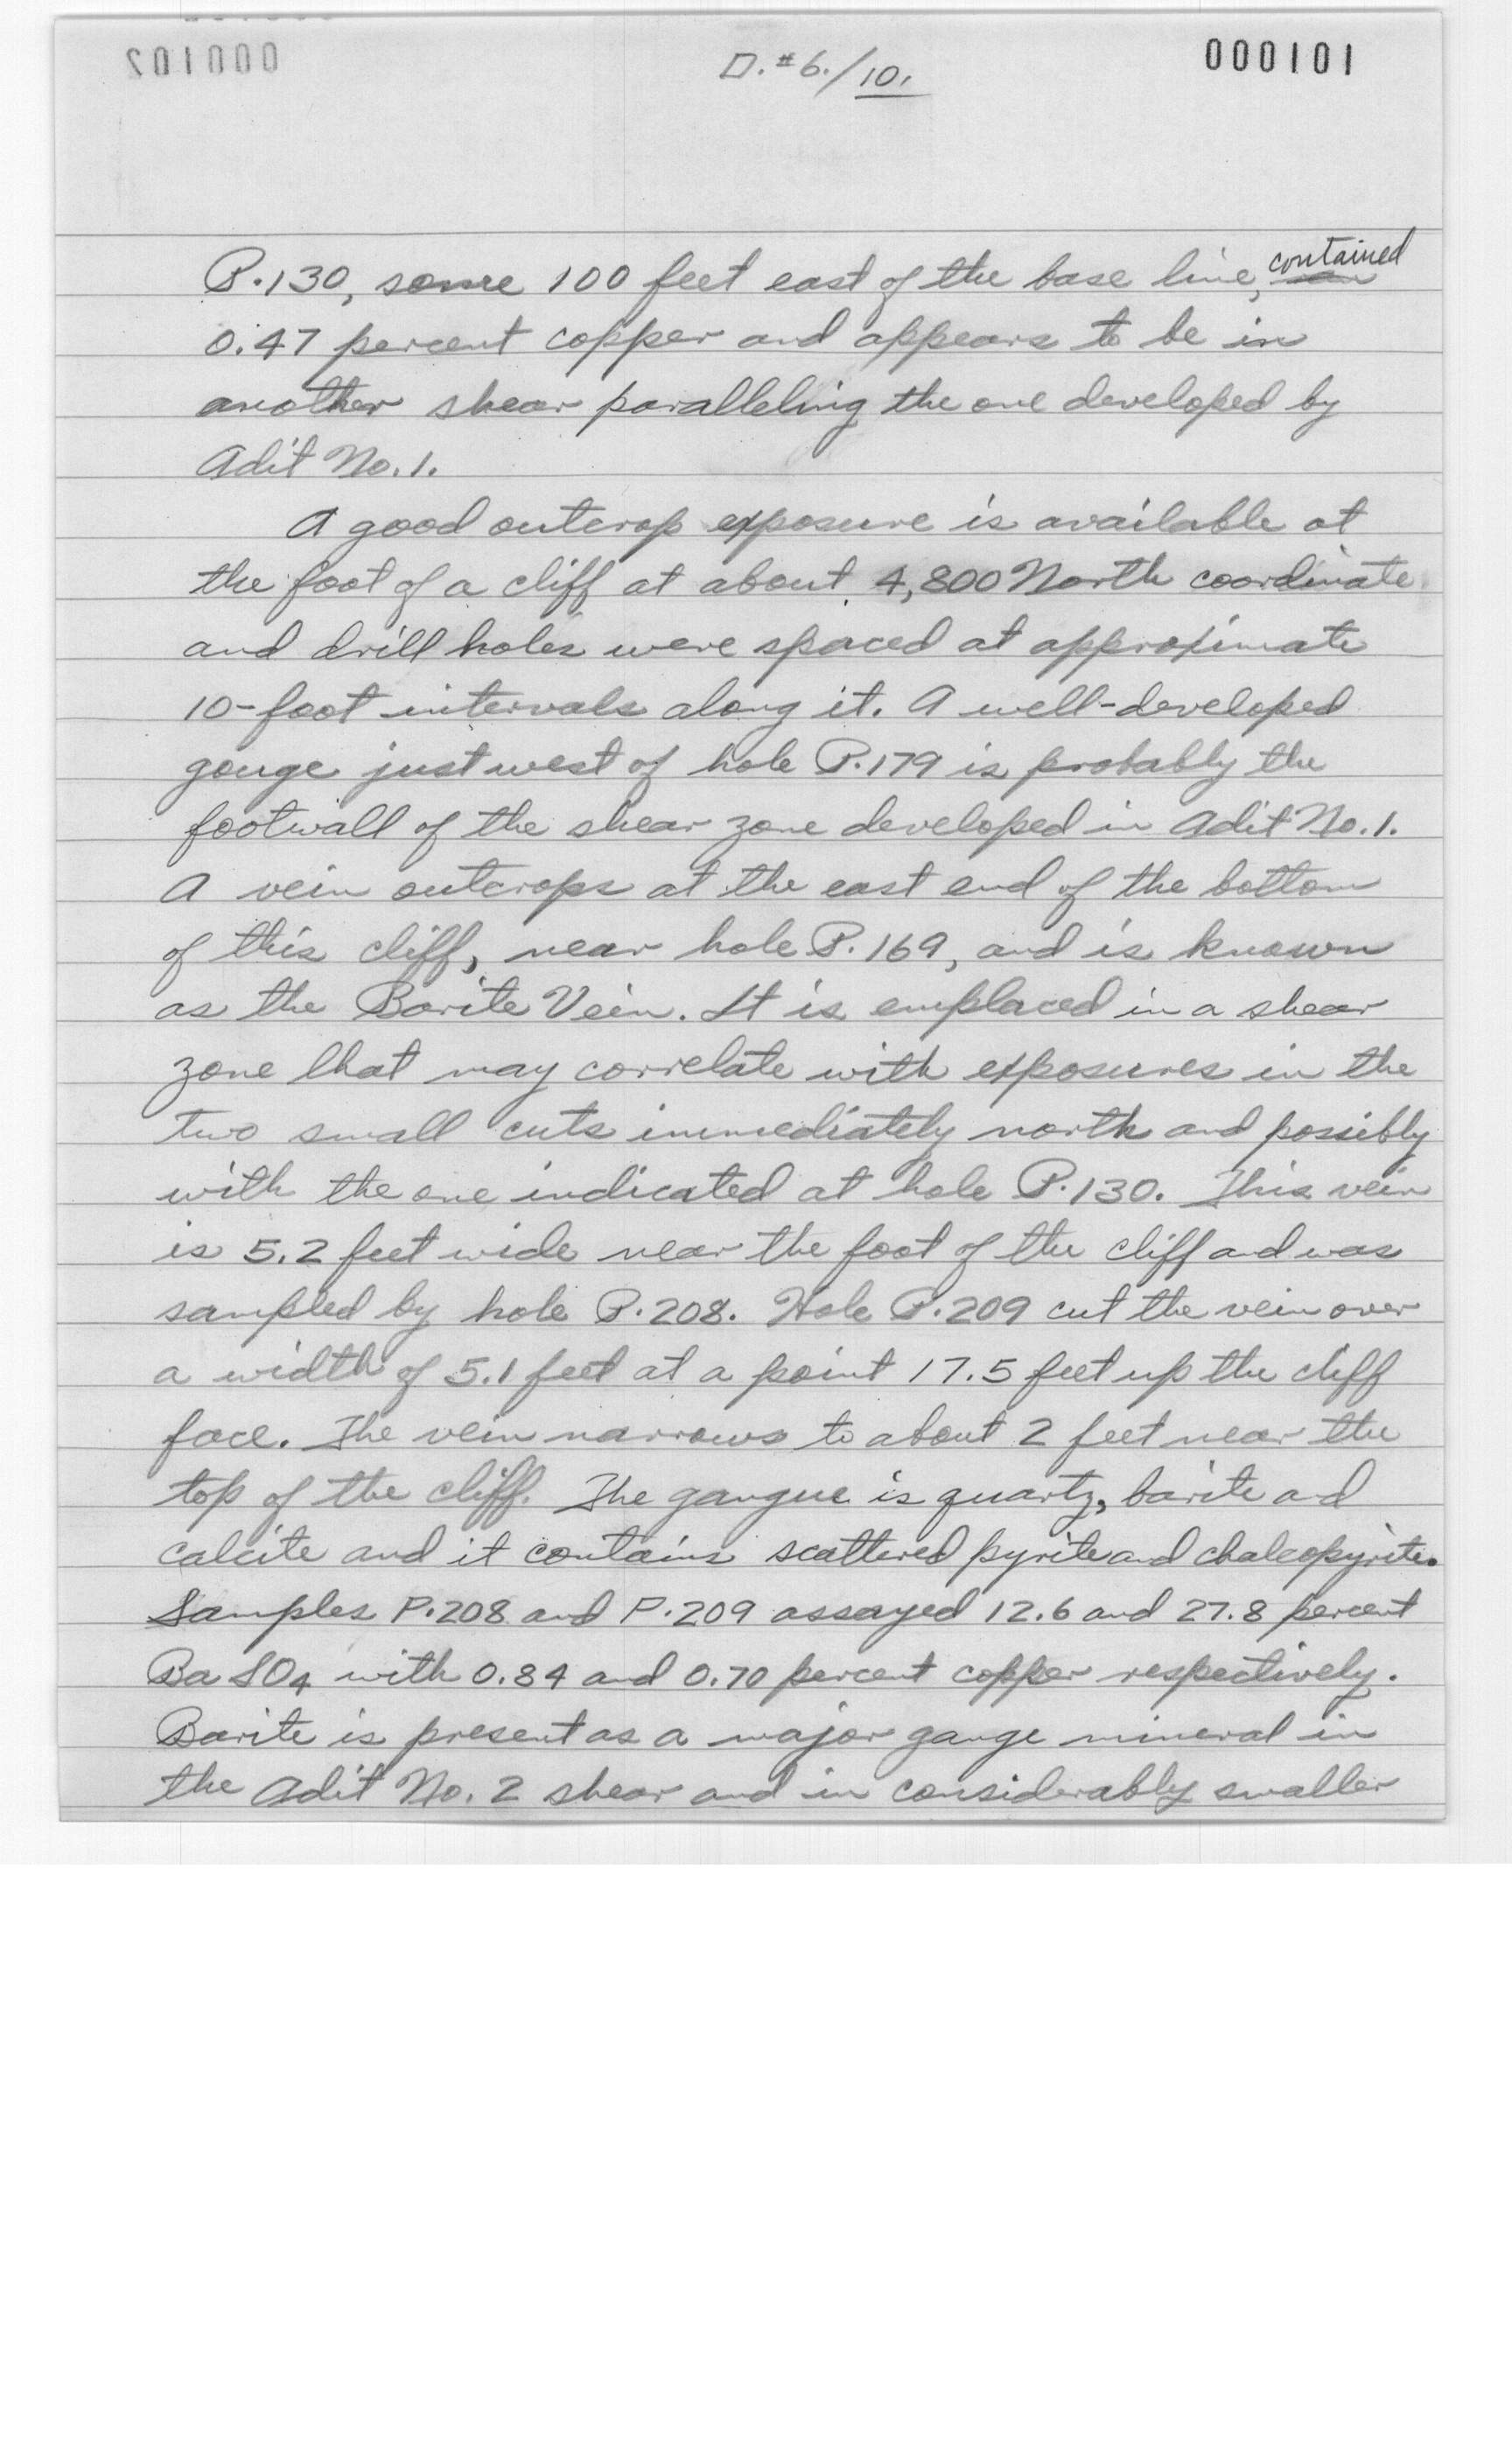 D.#6./10.
000101
P.130, some 100 feet east of the base line, contained
0.47 percent copper and appears to be in
another shear paralleling the one developed by
Adit No.1.
A good outcrop exposure is available at
the foot of a cliff at about 4,800 North coordinate
and drill holes were spaced at approximate
10-foot intervals along it. A well-developed
gouge just west of hole P.179 is probably the
footwall of the shear zone developed in Adit No.1.
A vein outcrops at the east end of the bottom
of this cliff, near hole P.169, and is known
as the Barite Vein. It is emplaced in a shear
zone that may correlate with exposures in the
two small cuts immediately north and possibly
with the one indicated at hole P.130. This vein
is 5.2 feet wide near the foot of the cliff and was
sampled by hole P.208. Hole P.209 cut the vein over
a width of 5.1 feet at a point 17.5 feet up the cliff
face. The vein narrows to about 2 feet near the
top of the cliff. The gangue is quartz, barite and
calcite and it contains scattered pyrite and chalcopyrite.
Samples P.208 and P.209 assayed 12.6 and 27.8 percent
BaSO4 with 0.84 and 0.70 percent copper respectively.
Barite is present as a major gauge mineral in
the Adit No. 2 shear and in considerably smaller